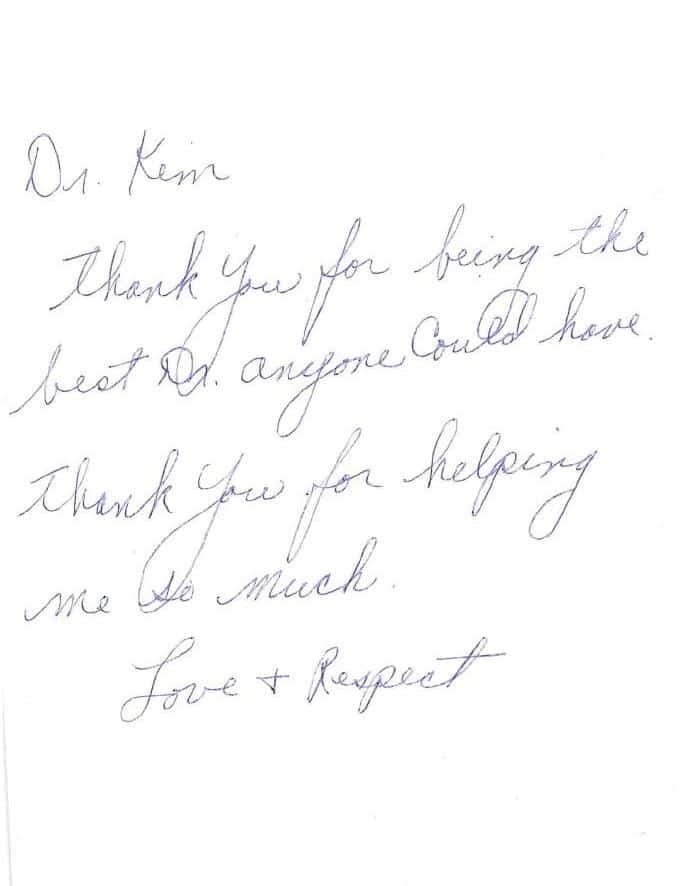 Dr. Kim
Thank You for being the
best Dr. anyone Could have.
Thank You for helping
me so much.
Love + Respect